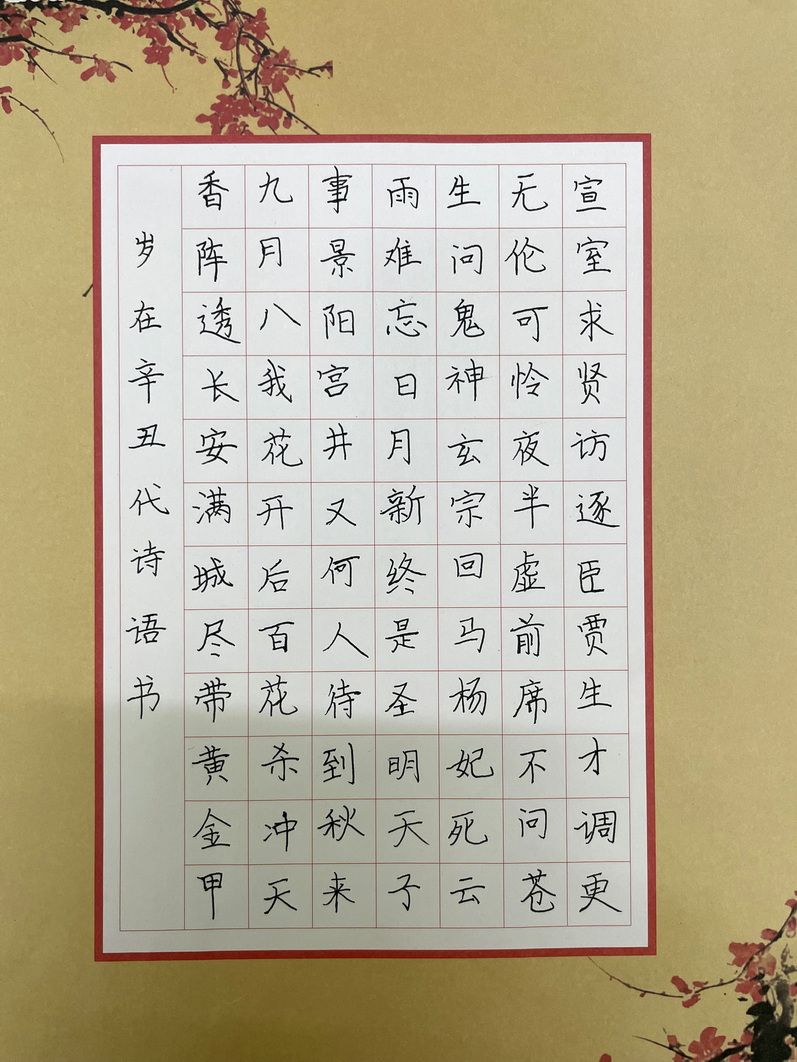 宣室求贤访逐臣贾生才调更
无伦可怜夜半虚前席不问苍
生问鬼神玄宗回马杨妃死云
雨难忘日月新终是圣明天子
事景阳宫井又何人待到秋来
九月八我花开后百花杀冲天
香阵透长安满城尽带黄金甲
岁在辛丑代诗语书